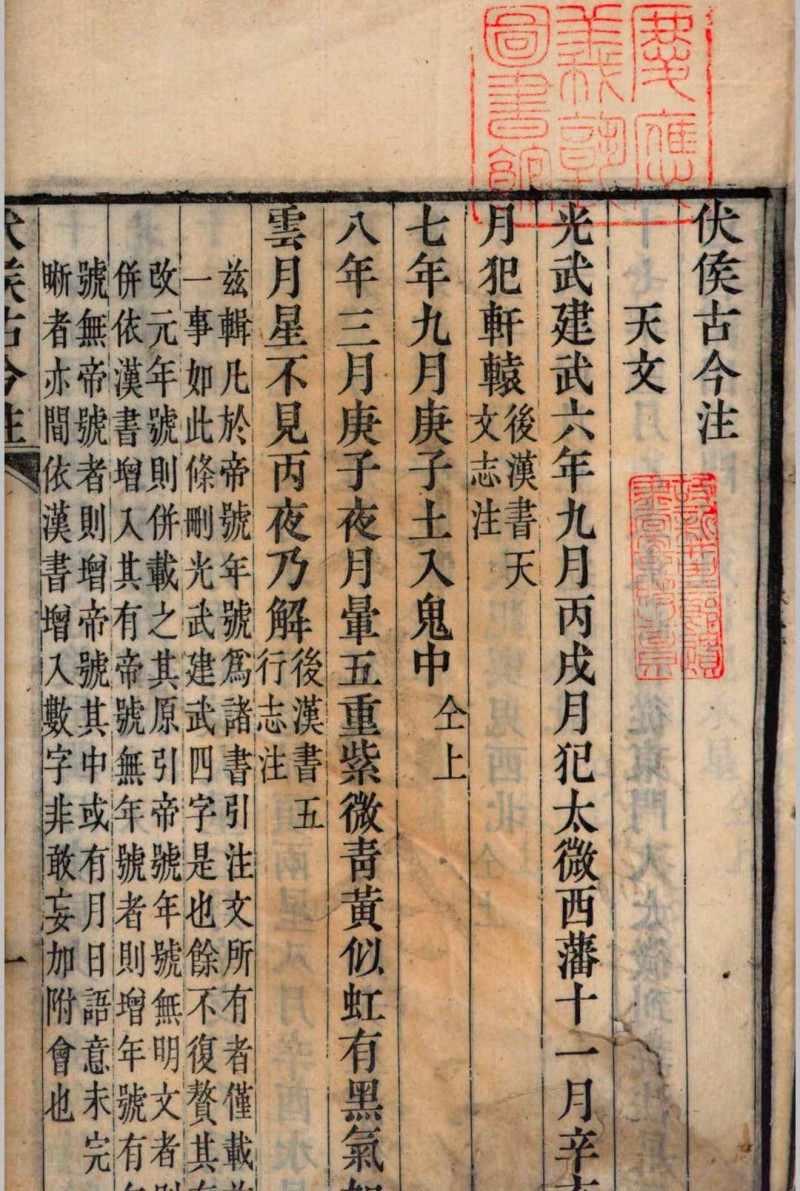 伏侯古今注
天文
光武建武六年九月丙戌月犯太微西藩十一月辛
月犯軒轅後漢書天
文志注
七年九月庚子土入鬼中仝上
八年三月庚子夜月暈五重紫微青黃似虹有黑氣如
雲月星不見丙夜乃解後漢書五
行志注
茲輯凡於帝號年號爲諸書引注文所有者僅載
一事如此條刪光武建武四字是也餘不復贅其
改元年號則併載之其原引帝號年號無明文者則
併依漢書增入其有帝號無年號者則增年號有
號無帝號者則增帝號其中或有月日語意未完
晰者亦間依漢書增入數字非敢妄加附會也
伏侯古今注
一
慶應義塾圖書館